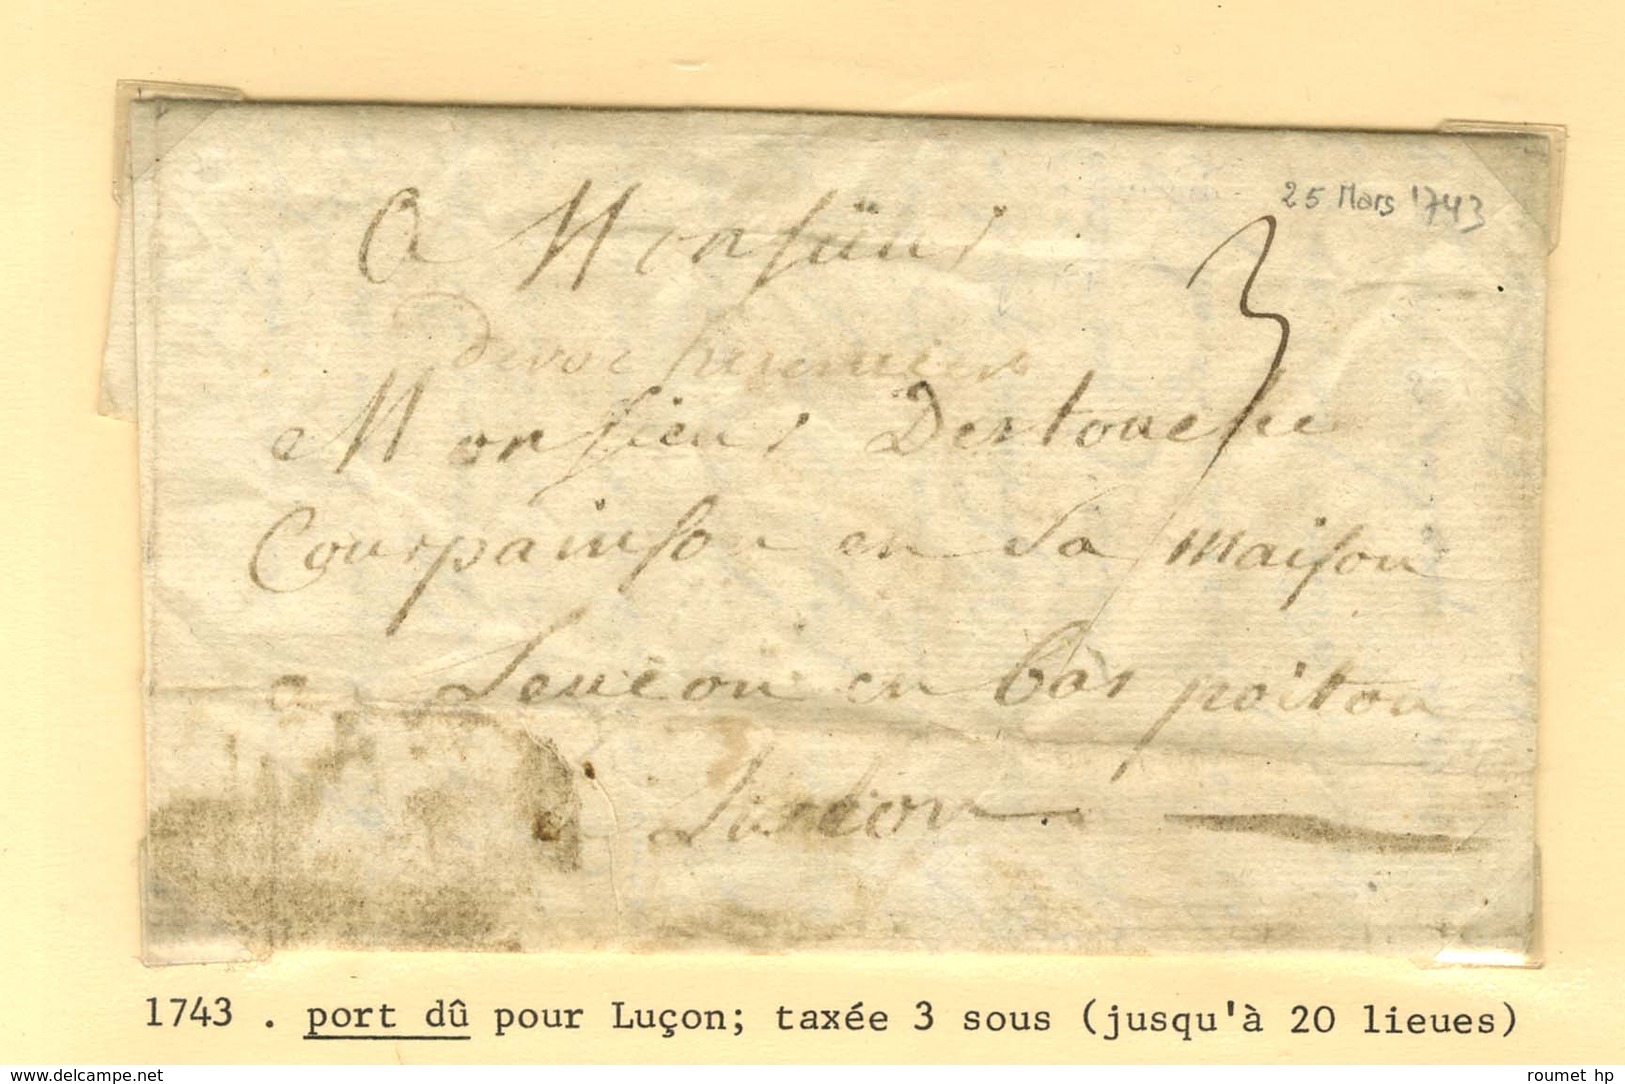 25 Mars 1743
A Monsieur
3
Monsieur Destouche
Courpainson en Sa maison
a Leucon en bas poitou
a Luscon
1743 . port dû pour Luçon; taxée 3 sous (jusqu'à 20 lieues)
delcampe.net
roumet hp